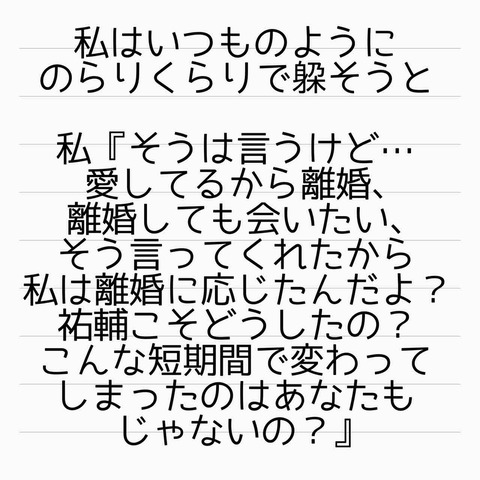 私はいつものように
のらりくらりで躱そうと
私『そうは言うけど…
愛してるから離婚、
離婚しても会いたい、
そう言ってくれたから
私は離婚に応じたんだよ？
祐輔こそどうしたの？
こんな短期間で変わって
しまったのはあなたも
じゃないの？』